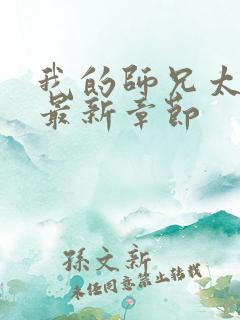 我的師兄太
最新章節
孫文新
未經同意禁止轉載